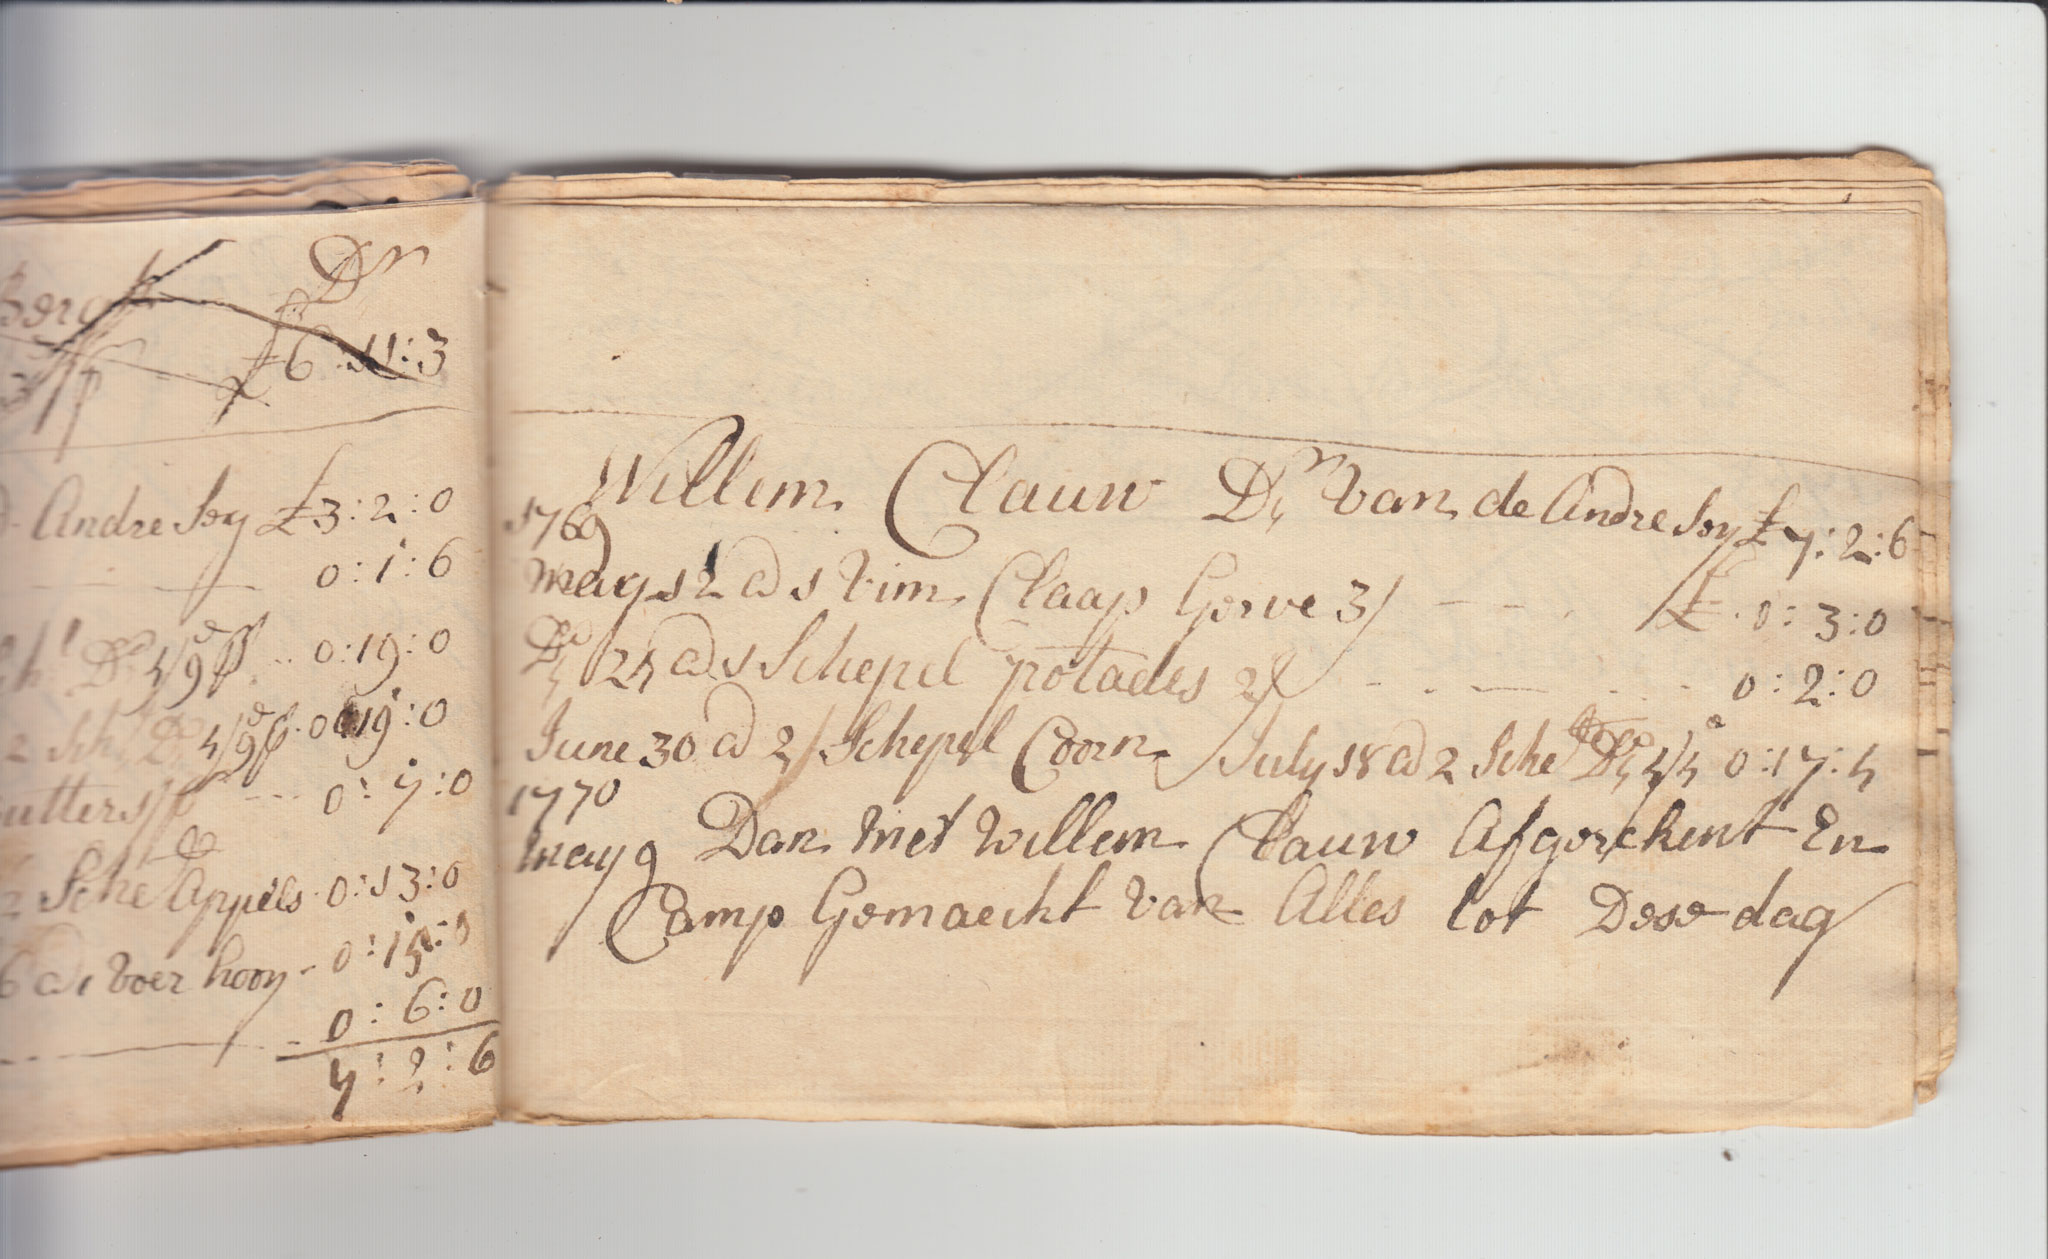 Dr
Bergh
£6:11:3
Andre Sey £3:2:0
0:1:6
Do 4/9 0:19:0
2 Sch Do 4/9 0:19:0
0:7:0
2 Sche Appels 0:13:0
6 ad 1 Voer hooy 0:15:0
0:6:0
7:2:6
Willem Clauw Dr Van de Andre Sey £7:2:6
1769
May 12 ad 1 Vim Claap Gerve 3/ £0:3:0
Do 24 ad 1 Schepel potades 2/ 0:2:0
June 30 ad 2 Schepel Coorn July 18 ad 2 Sche Do 4/4 0:17:4
1770
May 9 Dan Met Willem Clauw Afgerekent En
Camp Gemaeckt Van Alles tot Dese dag